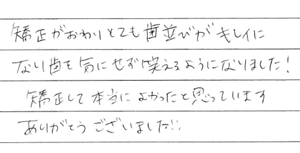 矯正がおわりとても歯並びがキレイに
なり歯を気にせず笑えるようになりました！
矯正して本当によかったと思っています
ありがとうございました!!